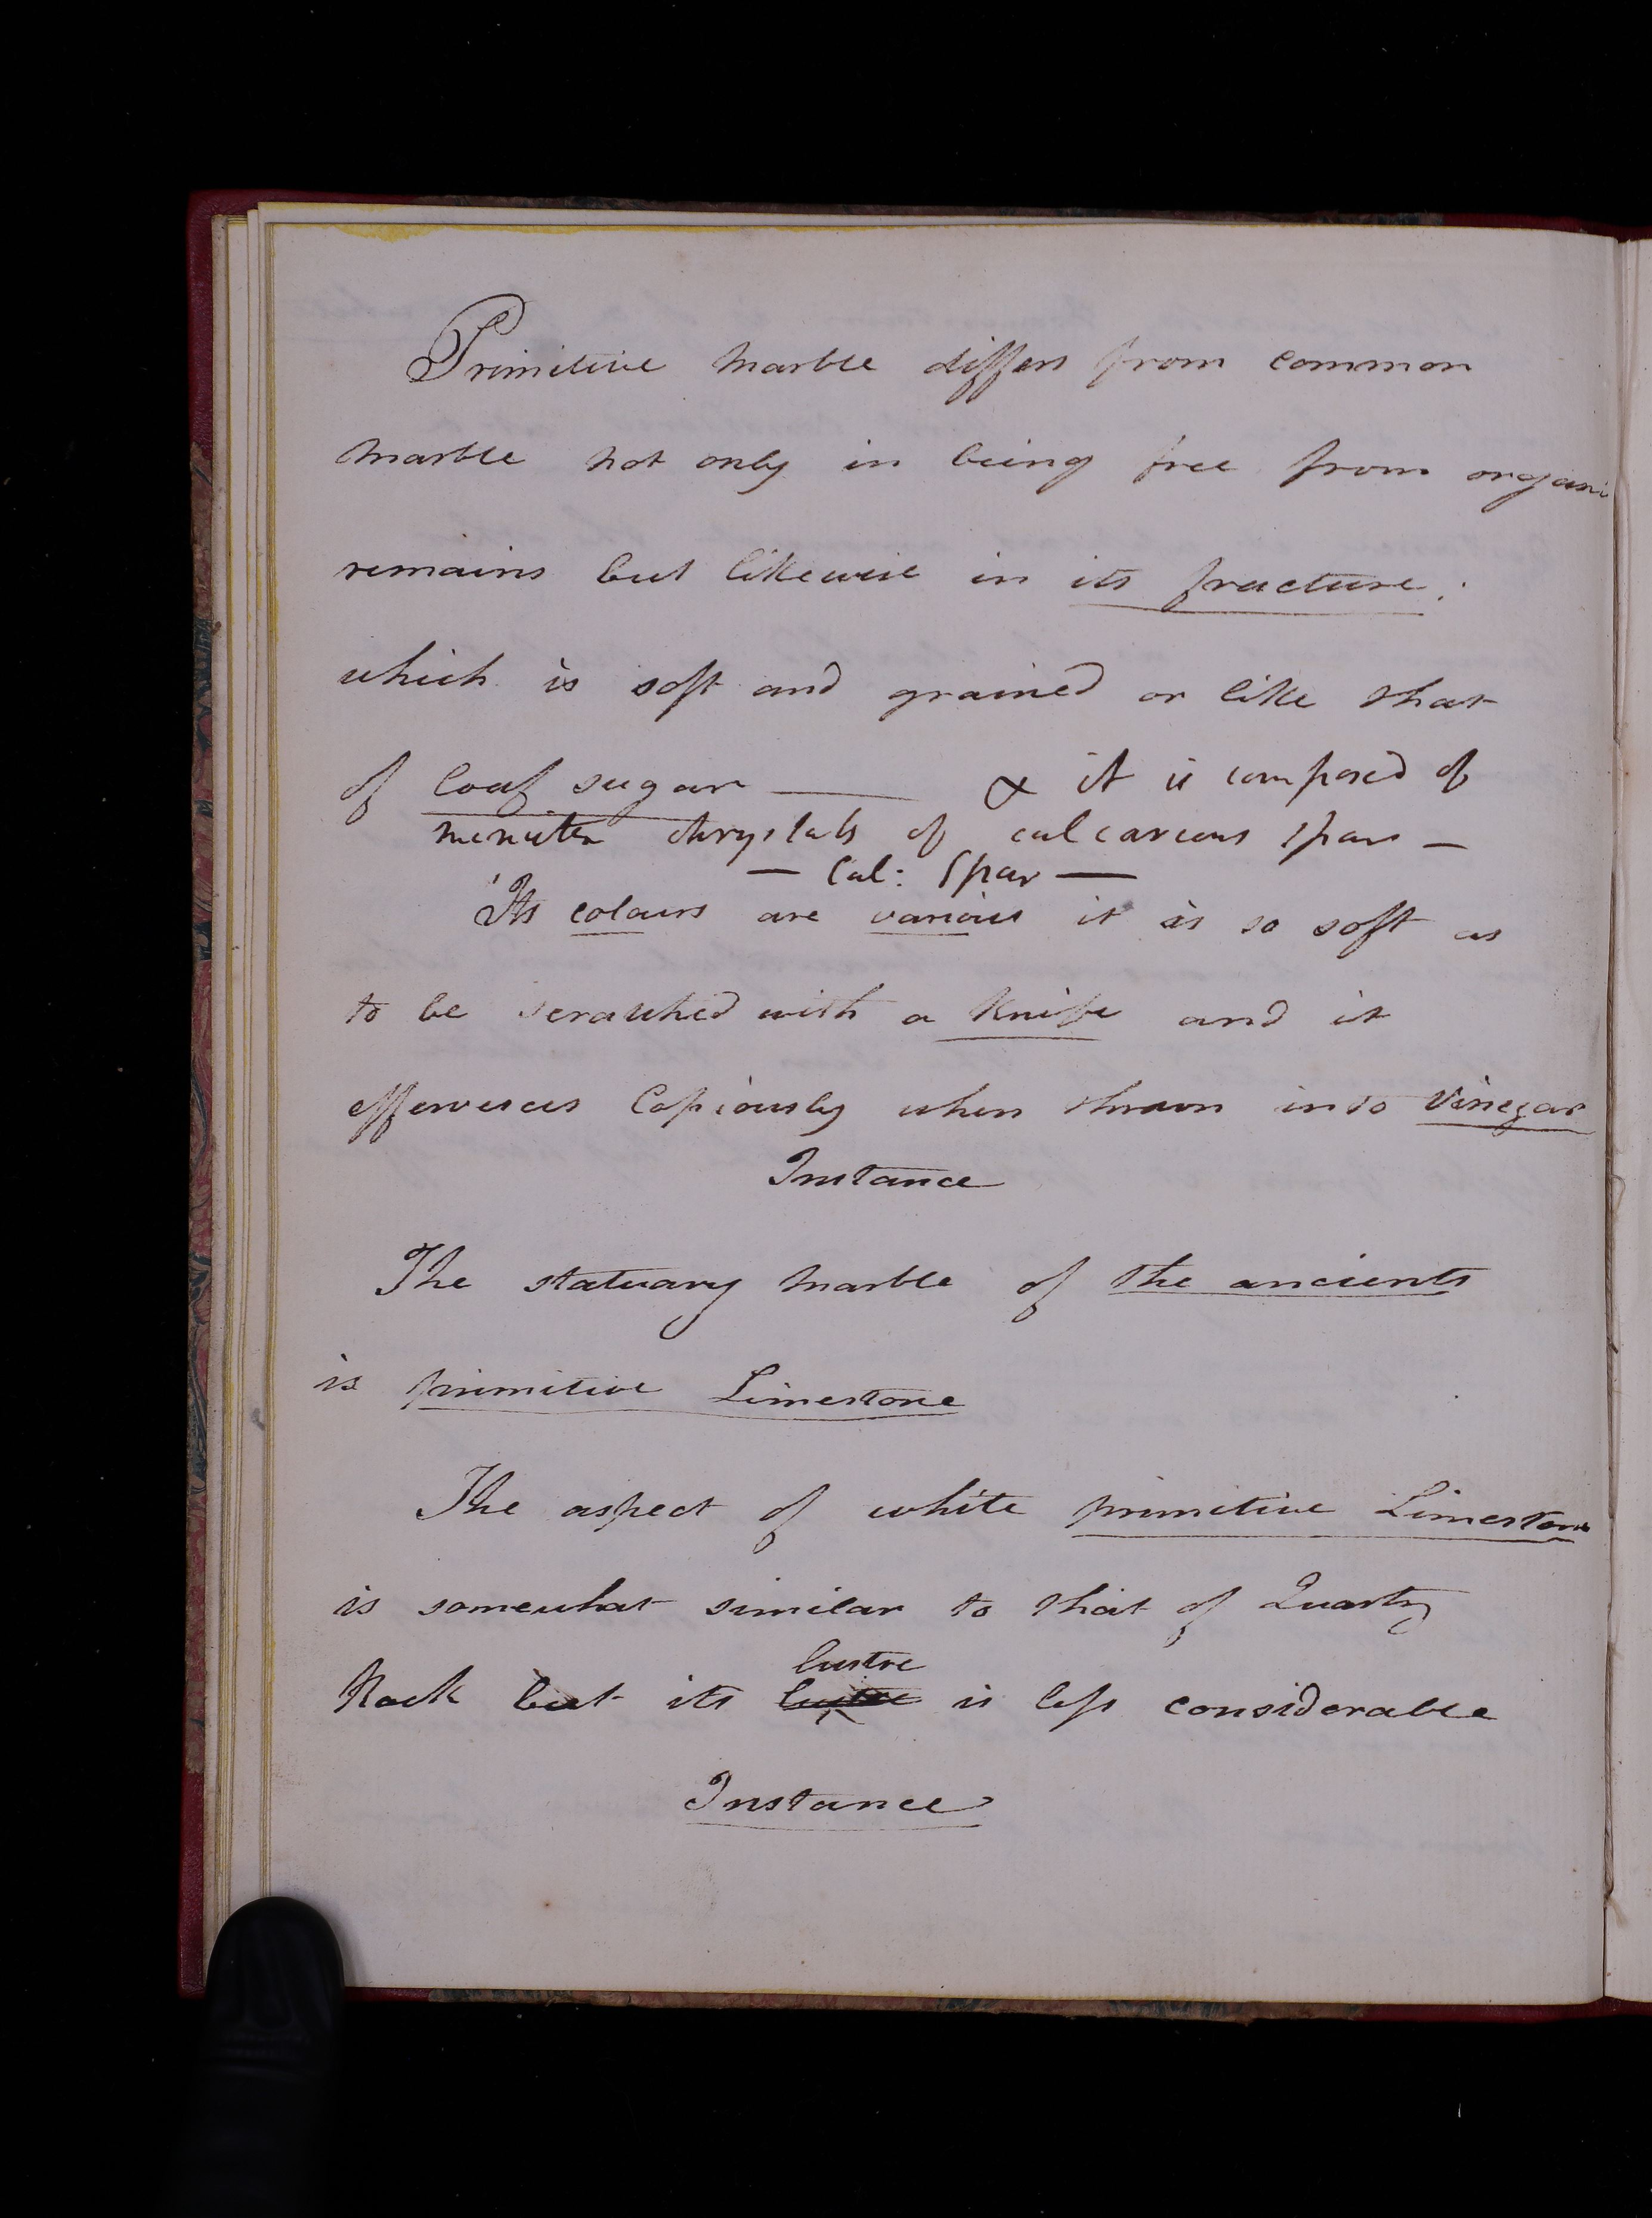 Primitive marble differs from common
marble not only in being free from organi
remains but likewise in its fracture;
which is soft and grained or like that
of loaf sugar —— & it is composed of
minute chrystals of calcareous spar —
— Cal: Spar —
Its colours are various it is so soft as
to be scratched with a Knife and it
effervesces Copiously when thrown into Vinegar
Instance
The statuary marble of the ancients
is primitive Limestone
The aspect of white primitive Limestone
is somewhat similar to that of Quartz
lustre
Rock but its lustre is less considerable
Instance